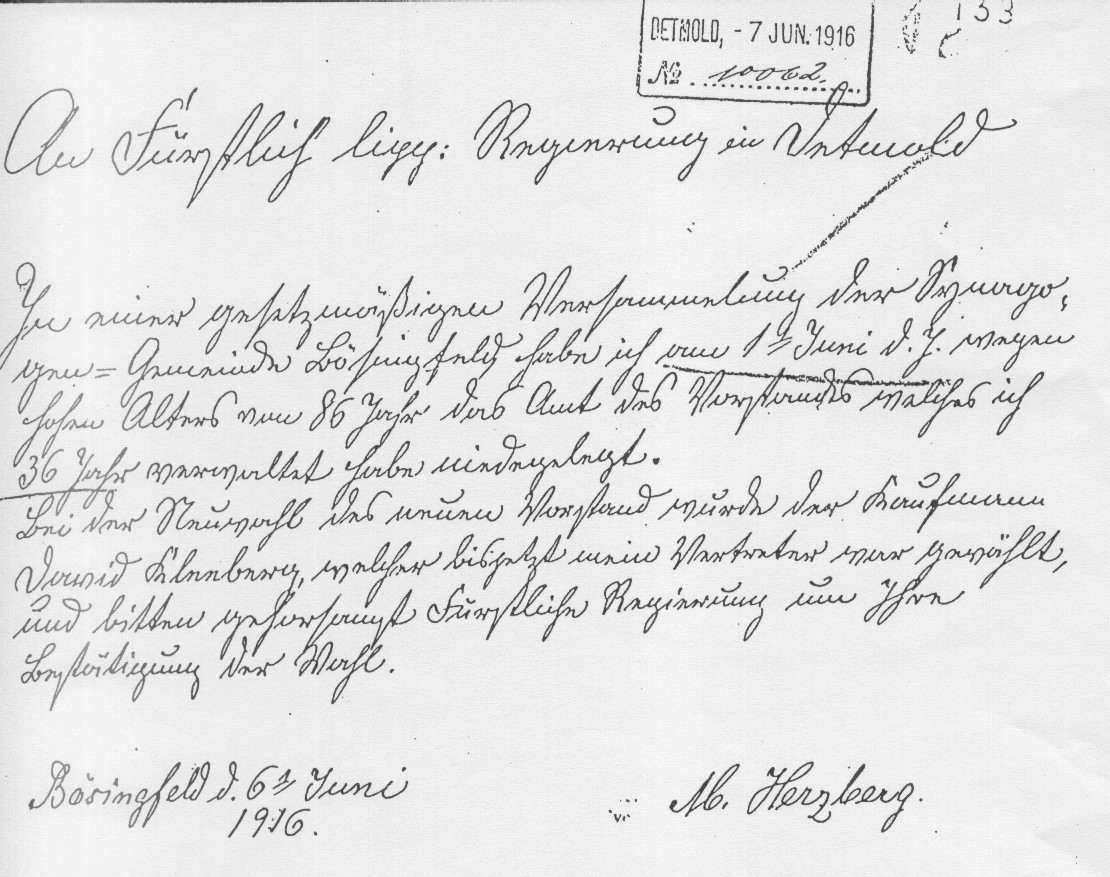 133
DETMOLD, - 7 JUN. 1916
№ 10062.
An Fürstlich lipp: Regierung in Detmold
In einer gesetzmäßigen Versammelung der Synago-
gen= Gemeinde Bösingfeld habe ich am 1t Juni d. J. wegen
hohen Alters von 86 Jahr das Amt des Vorstandes welches ich
36 Jahr verwaltet habe niedegelegt.
Bei der Neuwahl des neuen Vorstand wurde der Kaufmann
David Kleeberg, welcher bisjetzt mein Vertreter war gewählt,
und bitten gehorsamst Fürstliche Regierung um Ihre
Bestätigung der Wahl.
Bösingfeld d. 6t Juni
1916.
M. Herzberg.